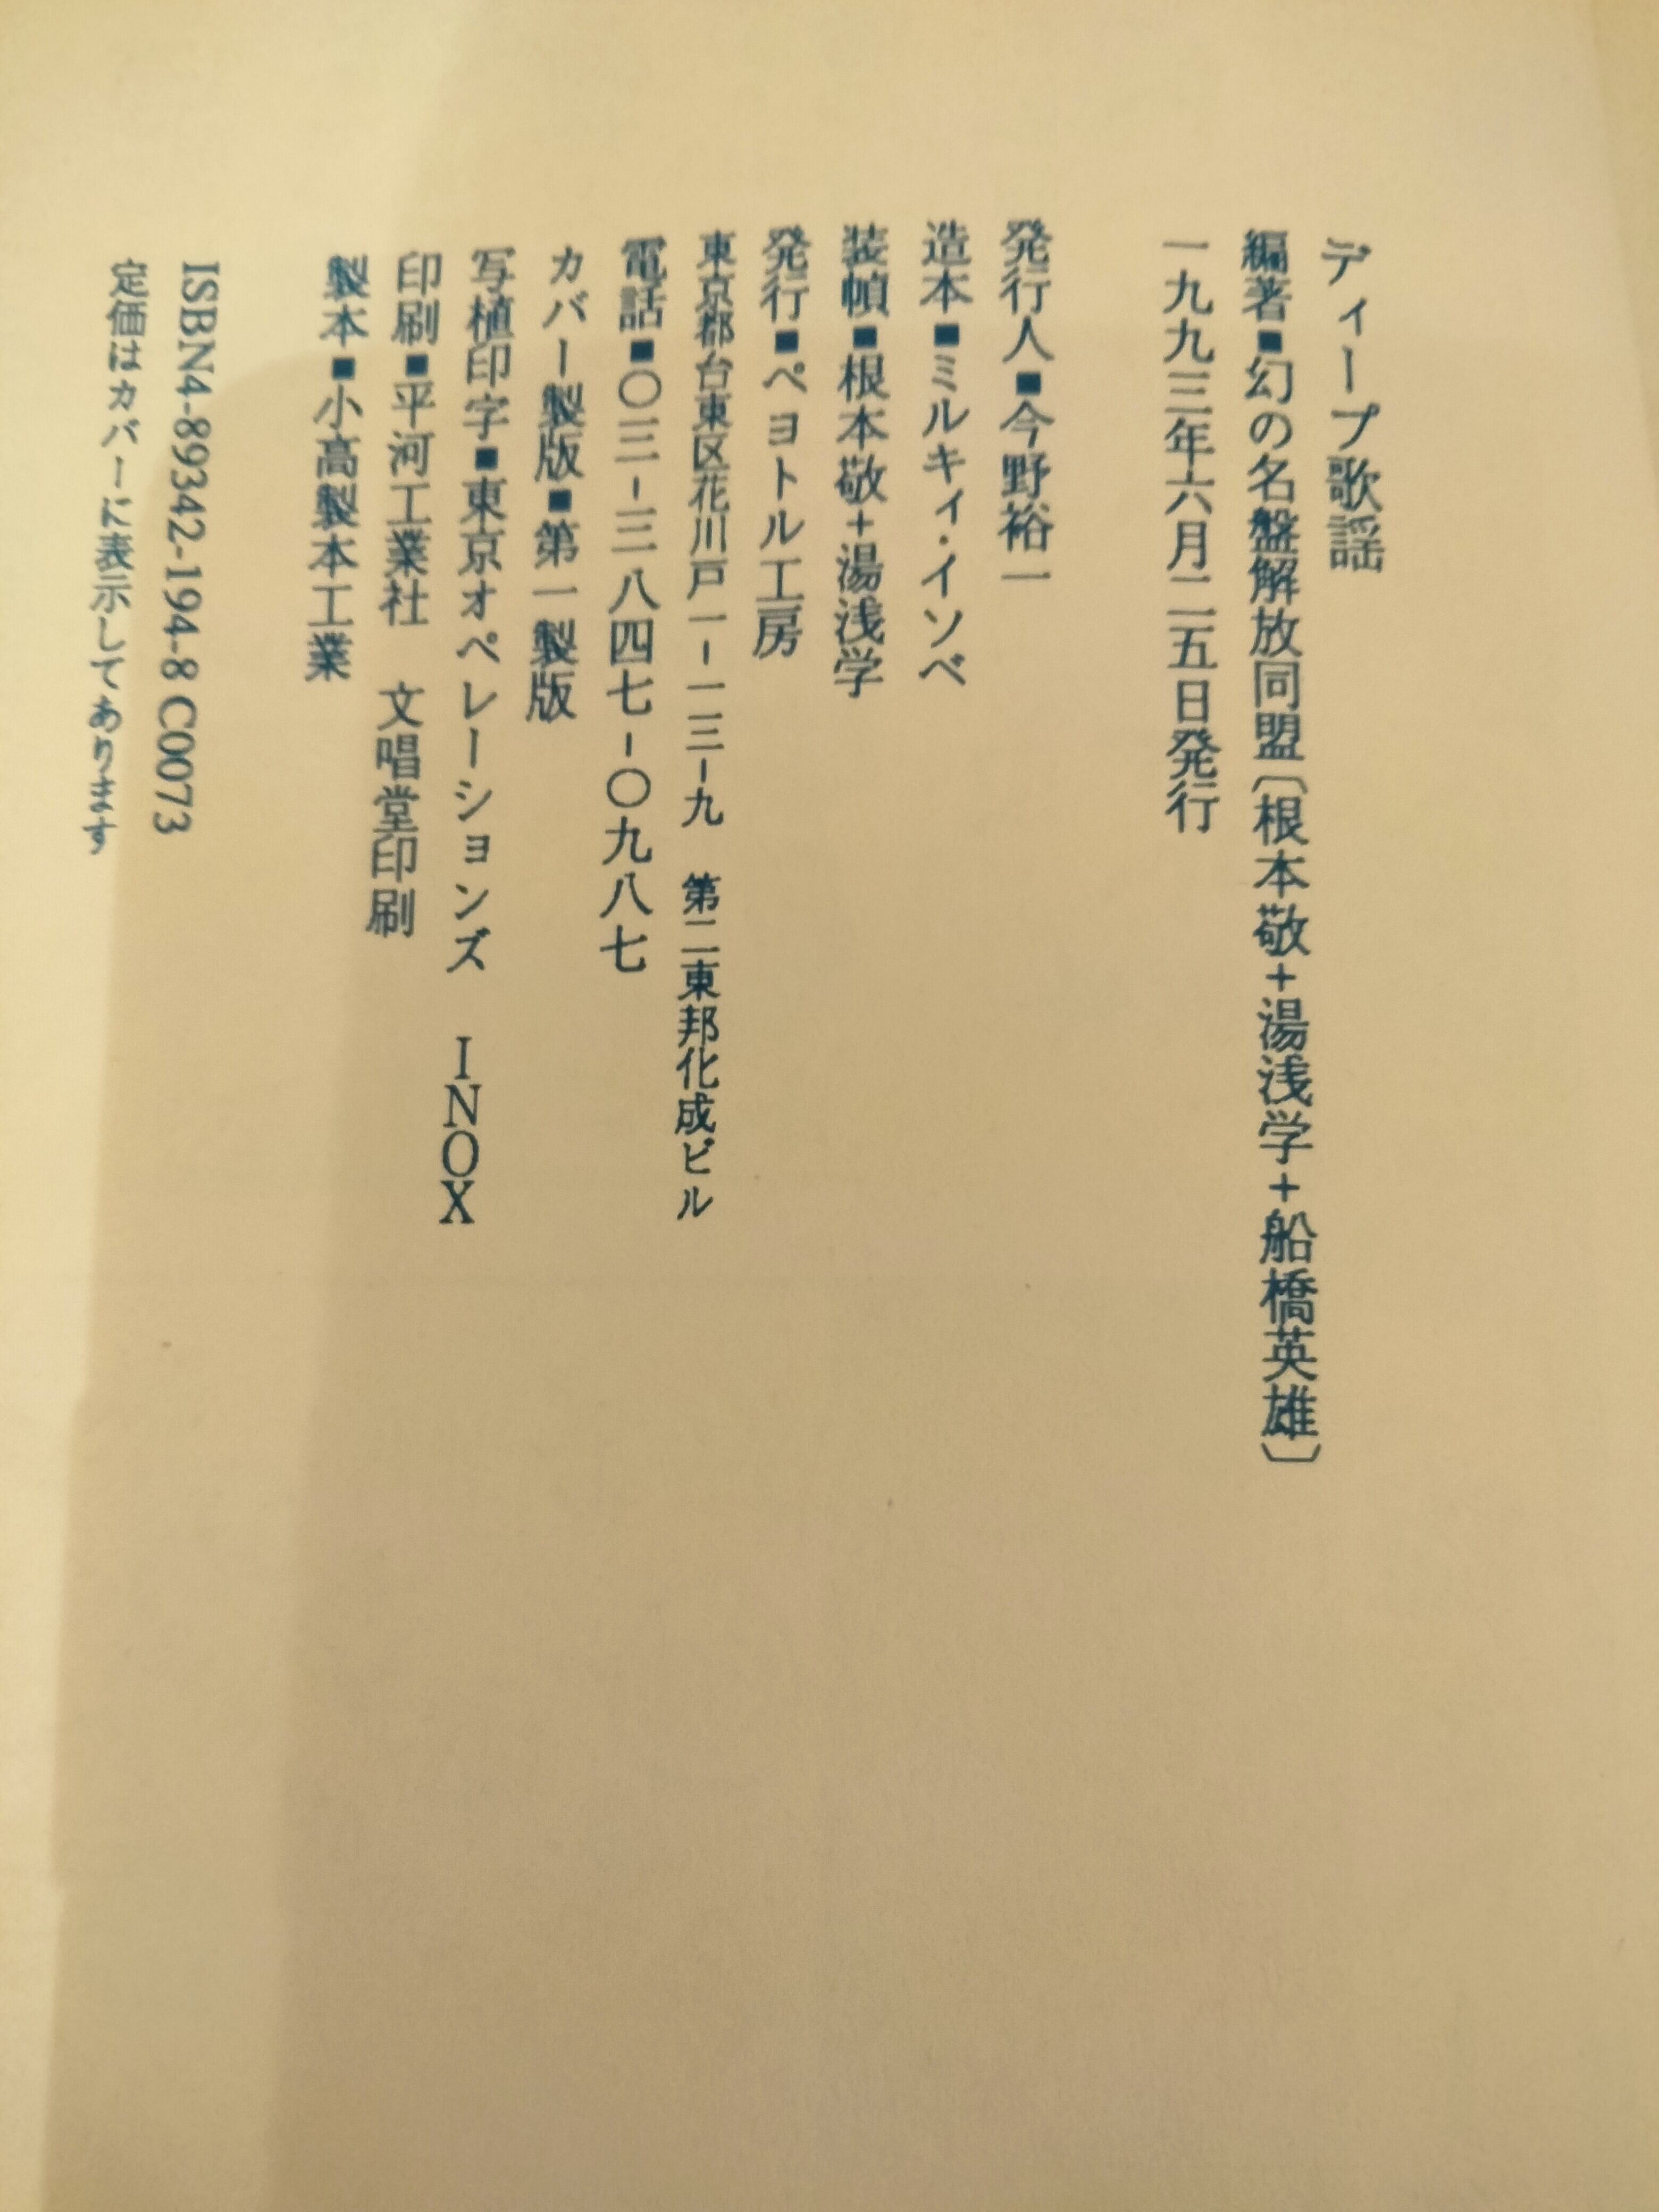 ディープ歌謡
編著■幻の名盤解放同盟〔根本敬+湯浅学+船橋英雄〕
一九九三年六月二五日発行
発行人■今野裕一
造本■ミルキィ・イソベ
装幀■根本敬+湯浅学
発行■ペヨトル工房
東京都台東区花川戸一-一三-九　第二東邦化成ビル
電話■〇三-三八四七-〇九八七
カバー製版■第一製版
写植印字■東京オペレーションズ　INOX
印刷■平河工業社　文唱堂印刷
製本■小高製本工業
ISBN4-89342-194-8 C0073
定価はカバーに表示してあります